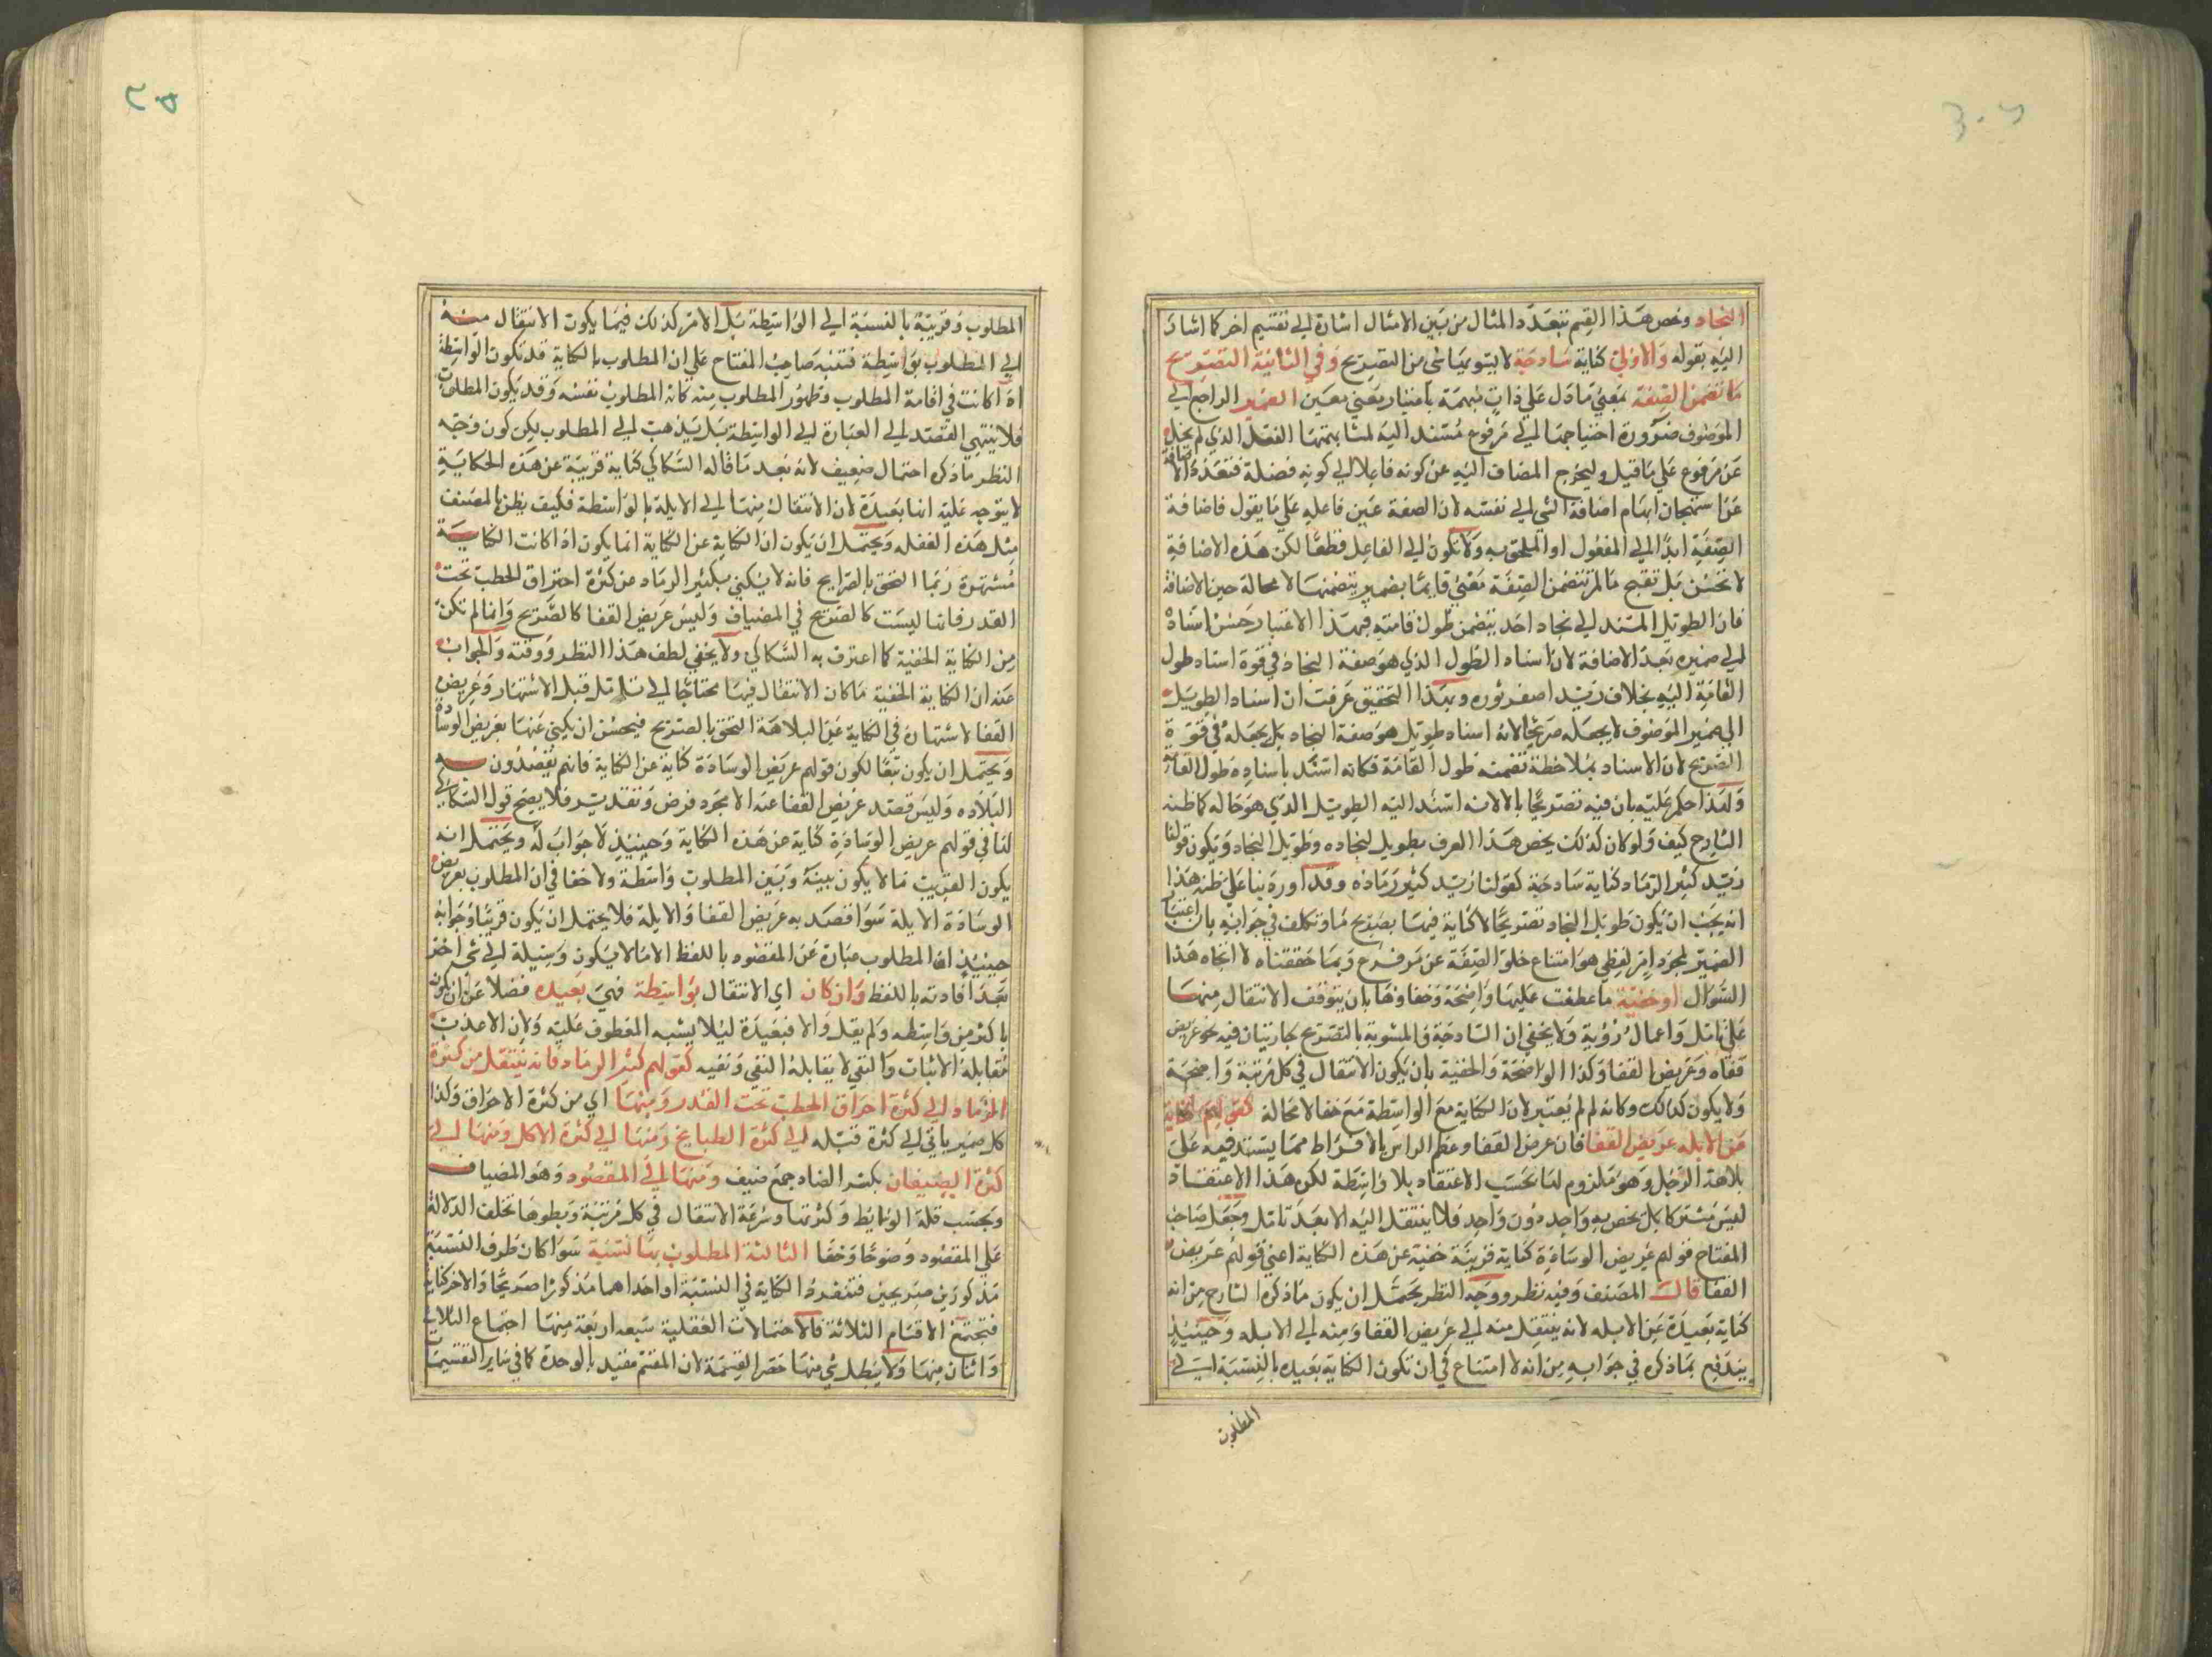 النجاد وخص هذا القسم بتعدد المثال من بين الامثال اشارة الى تقسيم اخر كما اشار
اليه بقوله والاولى كناية ساذجة لا يشوبها شي من التصريح وفي الثانية التصريح
ما لتضمن الصفة بمعنى ما دل على ذات مبهمة باعتبار معنى معين الضمير الراجع الى
الموصوف ضرورة احتياجها الى مرفوع مسند اليه لمشابهتها الفعل الذي لم يخل
عن مرفوع على ما قيل وليخرج المضاف اليه عن كونه فاعلا الى كونه فضلة فتعد الاضافة
عن استهجان ايهام اضافة الشي الى نفسه لان الصفة عين فاعله على ما يقول فاضافة
الصفة ابدا الى المفعول او الملحق به ولا تكون الى الفاعل قطعا لكن هذه الاضافة
لا تحسن بل تقبح ما لم تتضمن الصفة معنى قايما بضمير يتضمنها لا محالة حين الاضافة
فان الطويل المسند الى نجاد احد يتضمن طول قامته فبهذا الاعتبار حسن اسناده
الى ضميره بعد الاضافة لان اسناد الطول الذي هو صفة النجاد في قوة اسناد طول
القامة اليه بخلاف زيد اصفر ثوره وبهذا التحقيق عرفت ان اسناد الطويل
الى ضمير الموصوف لا يجعله صريحا لانه اسناد طويل هو صفة النجاد بل يجعله في قوة
الصريح لان الاسناد بملاحظة تضمنه طول القامة فكانه اسند باسناده طول القامة
ولهذا حكم عليه بان فيه تصريحا بالانه اسند اليه الطويل الذي هو حاله كما ظنه
الشارح كيف ولو كان كذلك يخص هذا العرف بطويل نجاده وطويل النجاد ويكون قولنا
زيد كثير الرماد كناية ساذجة كقولنا زيد كثير رماده وقد اورد بنا على ظنه هذا
انه يجب ان يكون طويل النجاد تصريحا لا كناية فيها بصريح ما وتكلف في جوابه بان اعتبار
الضمير لمجرد امر لفظي هو امتناع خلو الصفة عن مرفوع وبما حققناه لا اتجاه هذا
السوال او خفية ما عطفت عليها واضحة وخفاوها بان يتوقف الانتقال منها
على تامل واعمال رؤية ولا يخفى ان الساذجة والمشوبة بالتصريح يجاريتان فيه نحو عريض
قفاه وعريض القفا وكذا الواضحة والخفية بان يكون الانتقال في كل مرتبة واضحة
ولا يكون كذلك وكانه لم يعتبر لان الكناية مع الواسطة مع خفا لا محالة كقولهم كناية
عن الابله عريض القفا فان عرض القفا وعظم الراس بالافراط مما يستدل فيه على
بلاهة الرجل وهو ملزوم لها بحسب الاعتقاد بلا واسطة لكن هذا الاعتقاد
ليس مشتركا بل يخص به واحد دون واحد فلا ينتقل اليه الا بعد تامل وجعل صاحب
المفتاح قولهم عريض الوسادة كناية قريبة خفية عن هذه الكناية اعني قولهم عريض
القفا قال المصنف وفيه نظر ووجه النظر يحتمل ان يكون ما ذكره الشارح من انه
كناية بعيدة عن الابله لانه ينتقل منه الى عريض القفا ومنه الى الابله وحينيذ
يندفع بما ذكره في جوابه من انه لا امتناع في ان تكون الكناية بعيده بالنسبة الى
المطلوب
المطلوب وقريبة بالنسبة الى الواسطة بل الامر كذلك فيما يكون الانتقال منه
الى المطلوب بواسطة فتنبه صاحب المفتاح على ان المطلوب بالكناية قد تكون الواسطة
اذا كانت في افامة المطلوب وظهور المطلوب منه كانه المطلوب نفسه وقد يكون المطلوب
فلا ينتهي القصد الى العبارة الى الواسطة بل يذهب الى المطلوب لكن كون وجه
النظر ما ذكره احتمال ضعيف لانه بعد ما قاله السكاكي كناية قريبة عن هذه الحكاية
لا يتوجه عليه انها بعيدة لان الانتقال منها الى الابلة بالواسطة فكيف يظن بالمصنف
مثل هذه الغفله ويحتمل ان يكون ان الكناية عن الكناية انما يكون اذا كانت الكناية
مشتهرة ربما التحق بالصرايح فانه لا يكنى بكثير الرماد عن كثرة احتراق الحطب تحت
القدر فانها ليست كالصريح في المضياف وليس عريض القفا كالصريح وانما لم تكن
من الكناية الخفية كما اعترف به السكاكي ولا يخفى لطف هذا النظر ودقته والجواب
عنه ان الكناية الخفية ما كان الانتقال فيها محتاجا الى تامل قبل الاشتهار وعريض
القفا لاشتهاره في الكناية عن البلاهة التحق بالصريح فيحسن ان يكنى عنها بعريض الوسادة
ويحتمل ان يكون تبعا لكون قولهم عريض الوسادة كناية عن الكناية فانهم يقصدون به
البلاده وليس قصد عريض القفا عنه الا مجرد فرض وتقدير فلا يصح قول السكاكي
لنا في قولهم عريض الوسادة كناية عن هذه الكناية وحينيذ لا جواب له ويحتمل انه
يكون القريب ما لا يكون بينه وبين المطلوب واسطة ولا خفا في ان المطلوب بعريض
الوسادة الابلة سوا قصد به عريض القفا والابلة فلا يحتمل ان يكون قريبا وجوابه
حينيذ ان المطلوب عبارة عن المقصود باللفظ الا ما لا يكون وسيلة الى شي اخر
بعد افادته باللفظ وان كان اي الانتقال بواسطة فهي بعيده فضلا عن ان يكون
باكثر من واسطه ولم يقل والا فبعيدة ليلا يشبه المعطوف عليه ولان الاعذب
مقابلة الاثبات والنفي لا يقابلة النفي ونفيه كقولهم كثير الرماد فانه ينتقل من كثرة
الرماد الى كثرة احراق الحطب تحت القدر ومنها اي من كثرة الاحراق وكذا
كل ضمير ياتي الى كثرة قبله الى كثرة الطبايخ ومنها الى كثرة الاكل ومنها الى
كثرة الضيفان بكسر الضاد جمع ضيف ومنها الى المقصود وهو المضياف
وبحسب قلة الوسايط وكثرتها وسرعة الانتقال في كل مرتبة وبطوها تختلف الدلالة
على المقصود وضوحا وخفا الثالثة المطلوب بها نسبة سوا كان طرف النسبة
مذكورين صريحين فتنفرد الكناية في النسبة او احداهما مذكورا صريحا والاخر كناية
فتجتمع الاقسام الثلاثة فالاحتمالات العقلية سبعه اربعة منها اجتماع الثلاث
واثنان منها ولا يبطل شي منها حصر القسمة لان المقسم مقيد بالوحدة كما في ساير التقسيمات